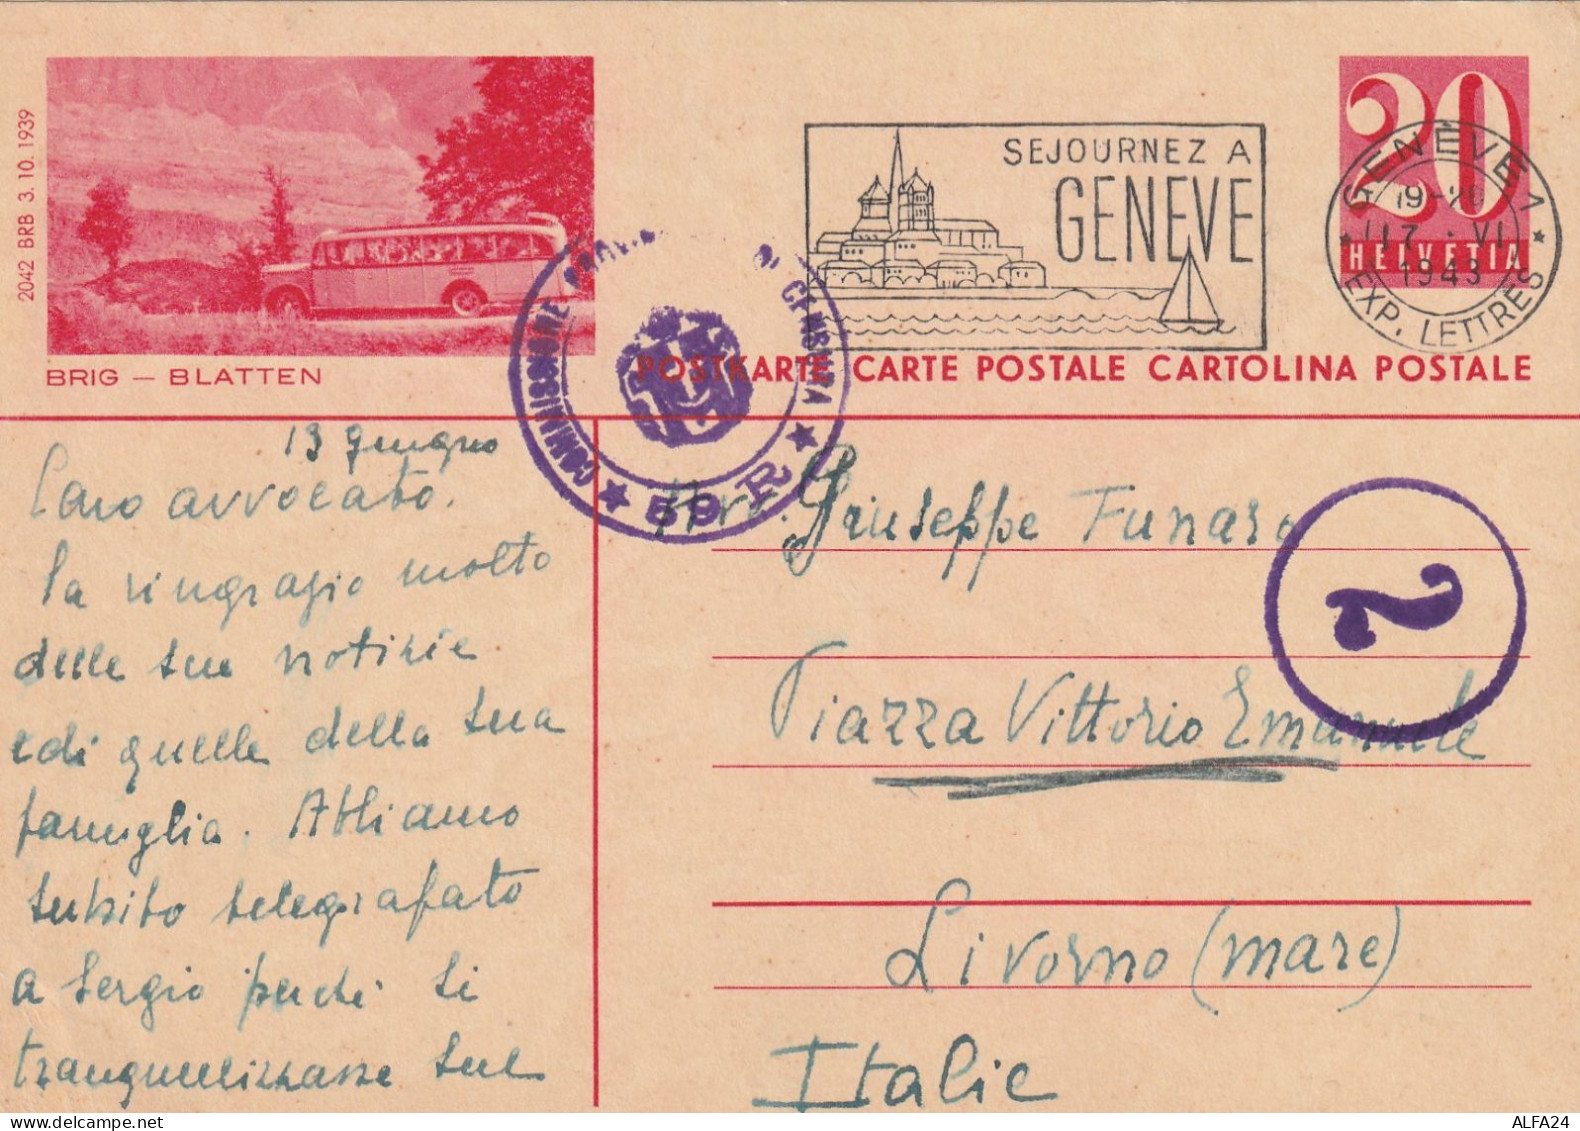 2042 BRB 3.10.1939
BRIG — BLATTEN
SEJOURNEZ A
GENEVE
20
HELVETIA
GENÈVE 1
19-20
17·VI
1943
EXP. LETTRES
COMMISSIONE DI CENSURA
59 R
POSTKARTE CARTE POSTALE CARTOLINA POSTALE
13 giugno
Caro avvocato.
la ringrazio molto
delle sue notizie
e di quelle della sua
famiglia. Abbiamo
subito telegrafato
a Sergio perché si
tranquillizzasse sul
Avv. Giuseppe Funaro
2
Piazza Vittorio Emanuele
Livorno (mare)
Italie
ALFA24